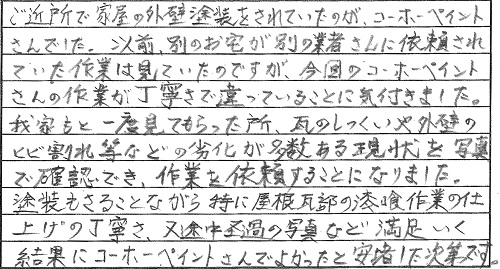 ご近所で家屋の外壁塗装をされていたのが、コーホーペイント
さんでした。以前、別のお宅が別の業者さんに依頼され
ていた作業は見ていたのですが、今回のコーホーペイント
さんの作業が丁寧さで違っていることに気付きました。
我家もと一度見てもらった所、瓦のしっくいや外壁の
ヒビ割れ等などの劣化が多数ある現状を写真
で確認でき、作業を依頼することになりました。
塗装もさることながら特に屋根瓦部の漆喰作業の仕
上げの丁寧さ、又途中経過の写真など満足いく
結果にコーホーペイントさんでよかったと安堵した次第です。